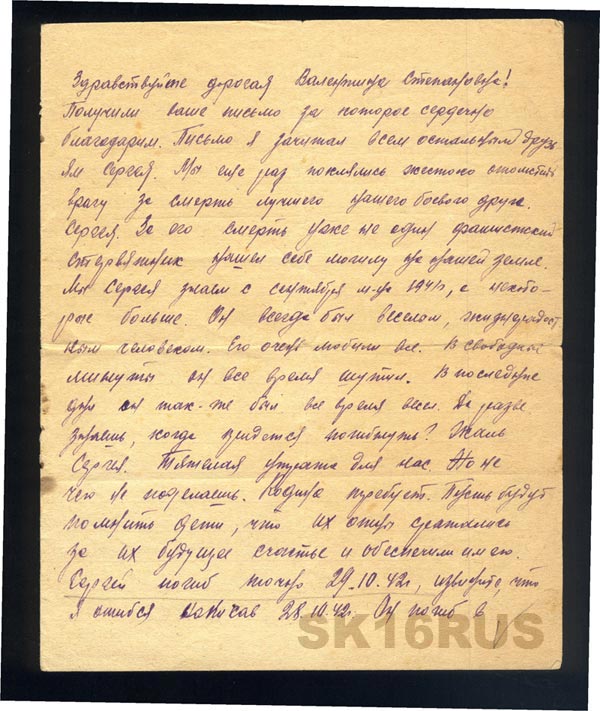 Здравствуйте дорогая Валентина Степановна!
Получили ваше письмо за которое сердечно
благодарим. Письмо я зачитал всем остальным друзь
ям Сергея. Мы еще раз поклялись жестоко отомстить
врагу за смерть лучшего нашего боевого друга
Сергея. За его смерть уже не один фашистский
стервятник нашел себе могилу на нашей земле.
Мы Сергея знаем с сентября м-ца 1941г, а некото-
рые больше. Он всегда был веселом, жизнерадост
ным человеком. Его очень любили все. В свободный
минуты он все время шутил. В последние
дни он так-же был все время весел. Да разве
знаешь, когда придется погибнуть? Жаль
Сергея. Тяжелая утрата для нас. Но не
чего не поделаешь. Родина требует. Пусть будут
помнить дети, что их отцы сражались
за их будущее счастье и обеспечили им его.
Сергей погиб точно 29.10.42г, извините, что
я ошибся написав 28.10.42г. Он погиб в
SK16RUS